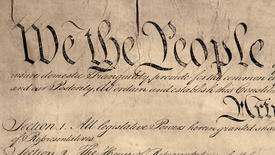 We the People
insure domestic Tranquility, provide for the common
and our Posterity, do ordain and establish this Constit
Arti
Section. 1. All legislative Powers herein granted sha
of Representatives.
Section. 2. The House of R